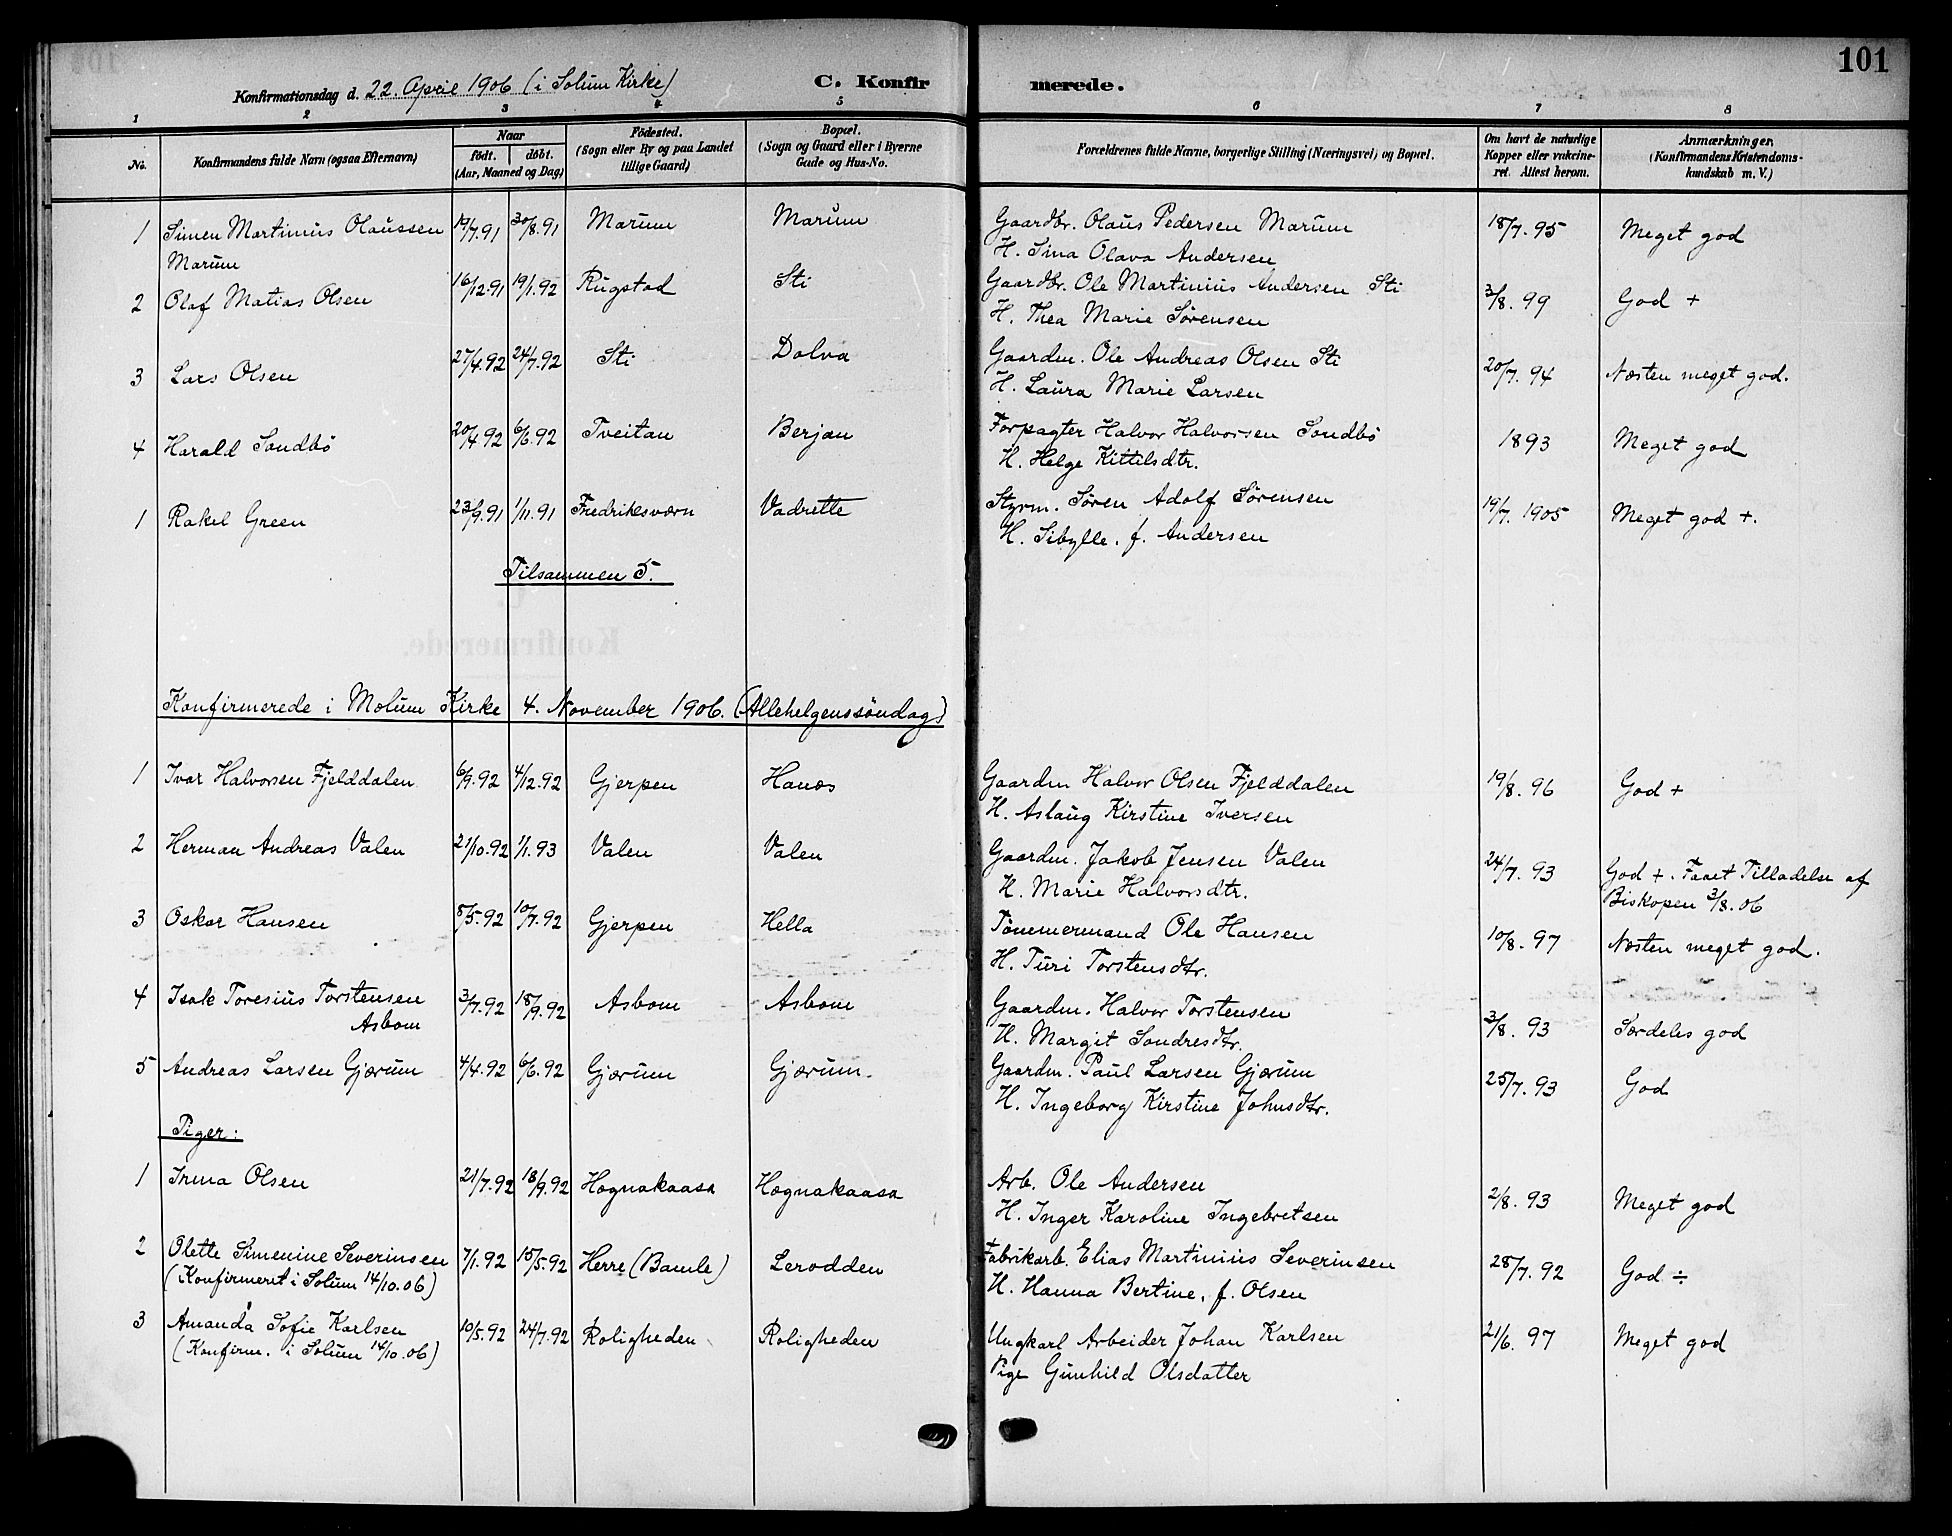 101
Konfirmationsdag d. 22. April 1906 (i Solum Kirke)
C. Konfirmerede.
1 2 3 4 5 6 7 8
No. | Konfirmandens fulde Navn (ogsaa Efternavn) | Naar født. | døbt. (Aar, Maaned og Dag) | Fødested. (Sogn eller By og paa Landet tillige Gaard) | Bopæl. (Sogn og Gaard eller i Byerne Gade og Hus-No. | Forældrenes fulde Navne, borgerlige Stilling (Næringsvei) og Bopæl. | Om havt de naturlige Kopper eller vakcineret. Attest herom. | Anmærkninger. (Konfirmandens Kristendomskundskab m. V.)
1 Simen Martinius Olaussen 19/7.91 30/8.91 Marum Marum Gaardbr. Olaus Pedersen Marum 18/7.95 Meget god
Marum H. Sina Olava Andersen
2 Olaf Matias Olsen 16/12.91 19/1.92 Rugstad Sti Gaardbr. Ole Martinius Andersen Sti 3/8.99 God +
H. Thea Marie Sørensen
3 Lars Olsen 27/4.92 24/7.92 Sti Dolva Gaardm. Ole Andreas Olsen Sti 20/7.94 Næsten meget god.
H. Laura Marie Larsen
4 Harald Sondbö 20/4.92 6/6.92 Tveitan Berjan Forpagter Halvor Halvorsen Sondbö 1893 Meget god
H. Helge Kittilsdtr.
1 Rakel Green 23/9.91 1/11.91 Fredriksværn Vadrette Styrm. Søren Adolf Sørensen 19/7.1905 Meget god +.
H. Sibylle, f. Andersen
Tilsammen 5.
Konfirmerede i Molum Kirke 4. November 1906. (Allehelgenssöndag)
1 Ivar Halvorsen Fjelddalen 6/9.92 4/12.92 Gjerpen Hanæs Gaardm Halvor Olsen Fjelddalen 19/8.96 God +
H. Aslaug Kirstine Iversen
2 Herman Andreas Valen 21/10.92 1/1.93 Valen Valen Gaardm. Jakob Jensen Valen 24/7.93 God +. Faaet Tilladelse af
H. Marie Halvorsdtr. Biskopen 3/8.06
3 Oskar Hansen 8/5.92 10/7.92 Gjerpen Hella Tömmermand Ole Hansen 10/8.97 Næsten meget god.
H. Turi Torstensdtr.
4 Isak Toresius Torstensen 3/7.92 18/9.92 Asbom Asbom Gaardm. Halvor Torstensen 3/8.93 Særdeles god
Asbom H. Margit Sondresdtr.
5 Andreas Larsen Gjærum 4/4.92 6/6.92 Gjærum Gjærum. Gaardm. Paul Larsen Gjærum 25/7.93 God
H. Ingeborg Kirstine Johnsdtr.
Piger:
1 Irma Olsen 21/7.92 18/9.92 Høgnakaasa Høgnakaasa Arb. Ole Andersen 2/8.93 Meget god
H. Inger Karoline Ingebretsen
2 Olette Simenine Severinsen 7/1.92 15/5.92 Herre (Bamle) Lerodden Fabrikarb. Elias Martinius Severinsen 28/7.92 God ÷
(Konfirmeret i Solum 14/10.06) H. Hanna Bertine, f. Olsen
3 Amanda Sofie Karlsen 10/5.92 24/7.92 Roligheden Roligheden Ungkarl Arbeider Johan Karlsen 21/6.97 Meget god
(Konfirm. i Solum 14/10.06) Pige Gunhild Olsdatter